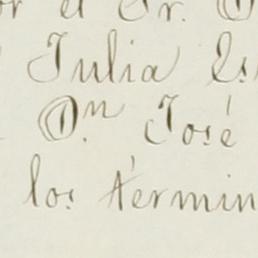 or el Sr.
Julia
Dⁿ José
los términ